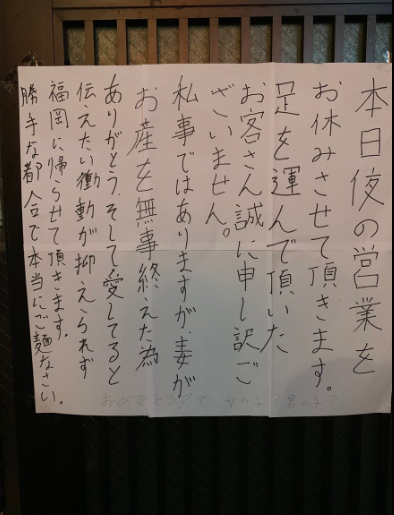 本日夜の営業を
お休みさせて頂きます。
足を運んで頂いた
お客さん誠に申し訳ご
ざいません。
私事ではありますが、妻が
お産を無事終えた為
ありがとう、そして愛してると
伝えたい衝動が抑えられず
福岡に帰らせて頂きます。
勝手な都合で本当にご麺なさい。
おめでとう で 女の子?男の子?